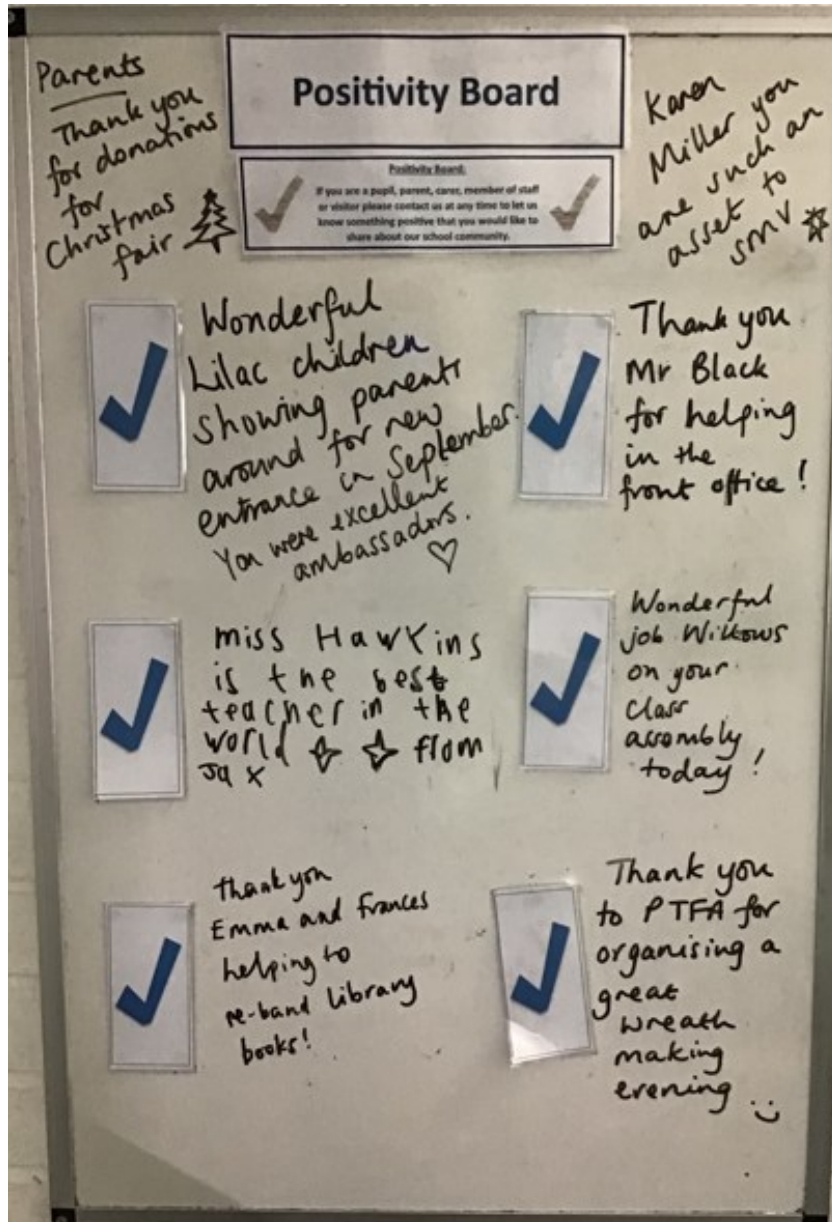 Positivity Board
Positivity Board:
If you are a pupil, parent, carer, member of staff
or visitor please contact us at any time to let us
know something positive that you would like to
share about our school community.
Parents
Thank you
for donations
for
Christmas
fair
Karen
Miller you
are such an
asset to
SMV
Wonderful
Lilac children
showing parents
around for new
entrance in September.
You were excellent
ambassadors.
Thank you
Mr Black
for helping
in the
front office!
miss Hawkins
is the best
teacher in the
world from
Jax
Wonderful
job Willows
on your
class
assembly
today!
thank you
Emma and Frances
helping to
re-band library
books!
Thank you
to PTFA for
organising a
great
wreath
making
evening